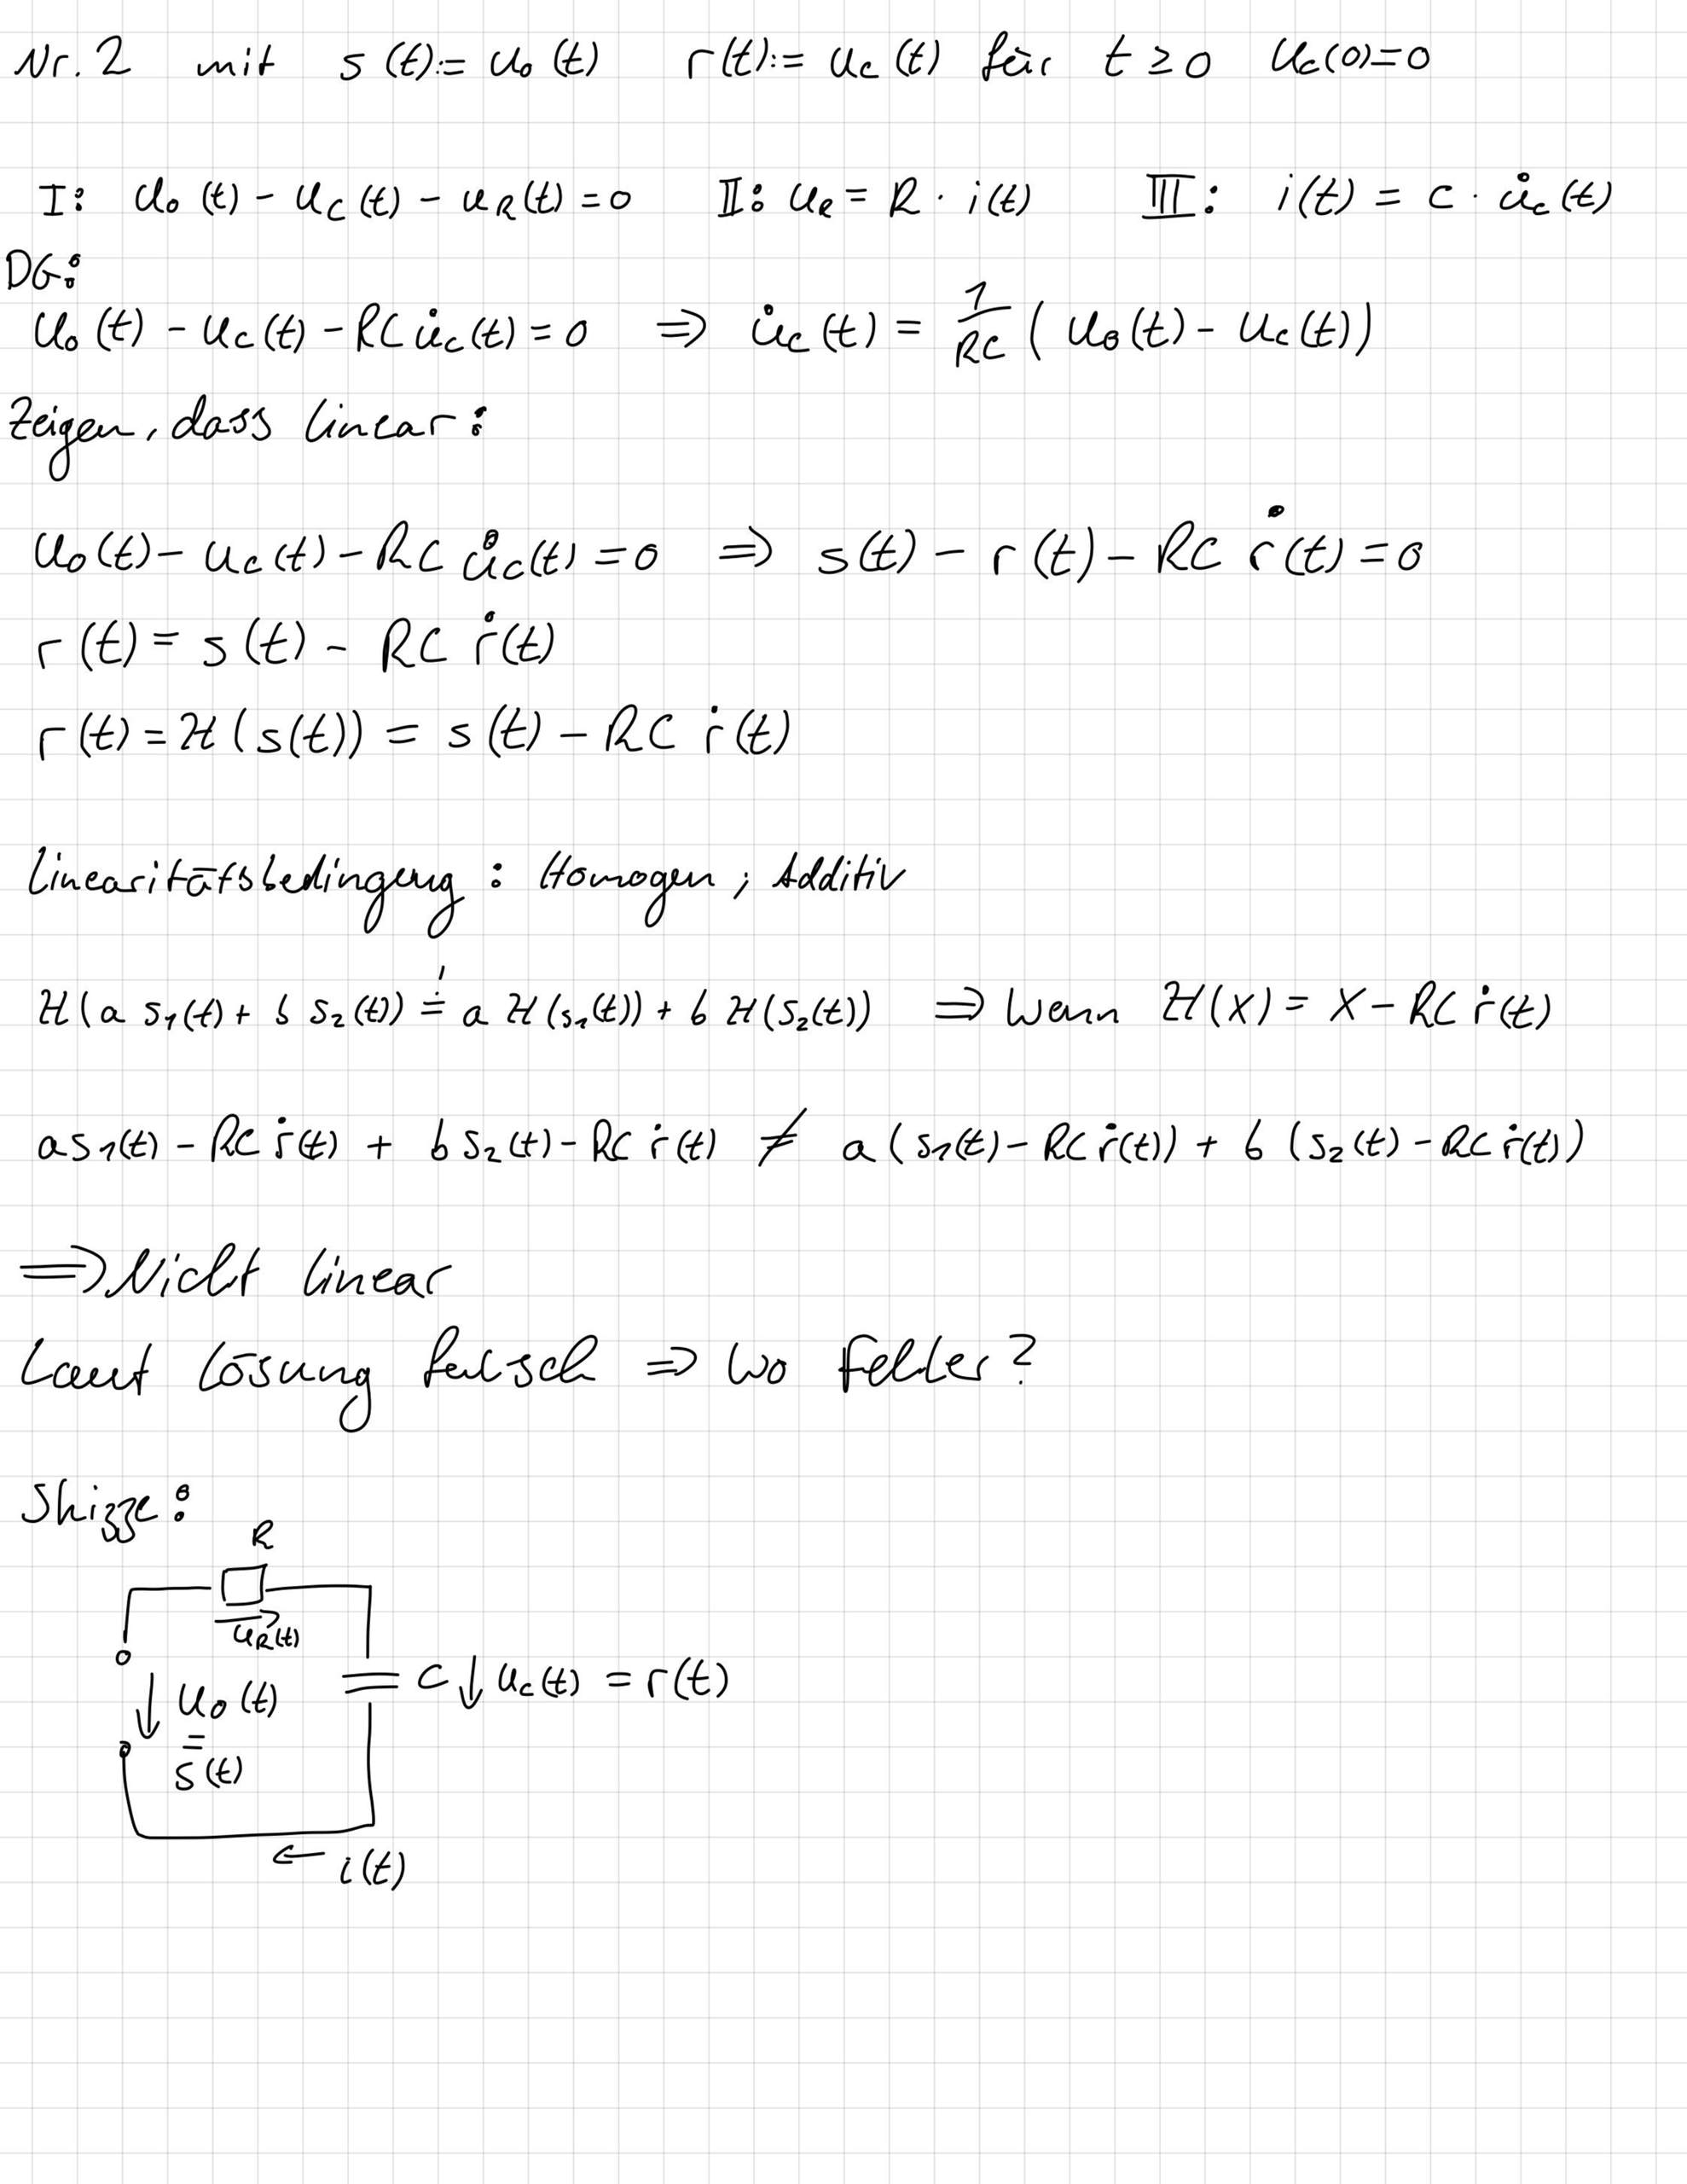 Nr. 2 mit s(t):= u₀(t) r(t):= u_C(t) für t ≥ 0 u_C(0)=0
I: u₀(t) - u_C(t) - u_R(t) = 0 II: u_R = R · i(t) III: i(t) = C · u̇_C(t)
DG:
u₀(t) - u_C(t) - RC u̇_C(t) = 0 ⇒ u̇_C(t) = 1/RC (u₀(t) - u_C(t))
Zeigen, dass linear:
u₀(t) - u_C(t) - RC u̇_C(t) = 0 ⇒ s(t) - r(t) - RC ṙ(t) = 0
r(t) = s(t) - RC ṙ(t)
r(t) = H(s(t)) = s(t) - RC ṙ(t)
Linearitätsbedingung: Homogen; Additiv
H(a s₁(t) + b s₂(t)) =! a H(s₁(t)) + b H(s₂(t)) ⇒ Wenn H(x) = x - RC ṙ(t)
a s₁(t) - RC ṙ(t) + b s₂(t) - RC ṙ(t) ≠ a(s₁(t) - RC ṙ(t)) + b (s₂(t) - RC ṙ(t))
⇒ Nicht linear
Laut Lösung falsch ⇒ Wo Fehler?
Skizze:
R
u_R(t)
u₀(t)
=
s(t)
C ↓ u_C(t) = r(t)
← i(t)